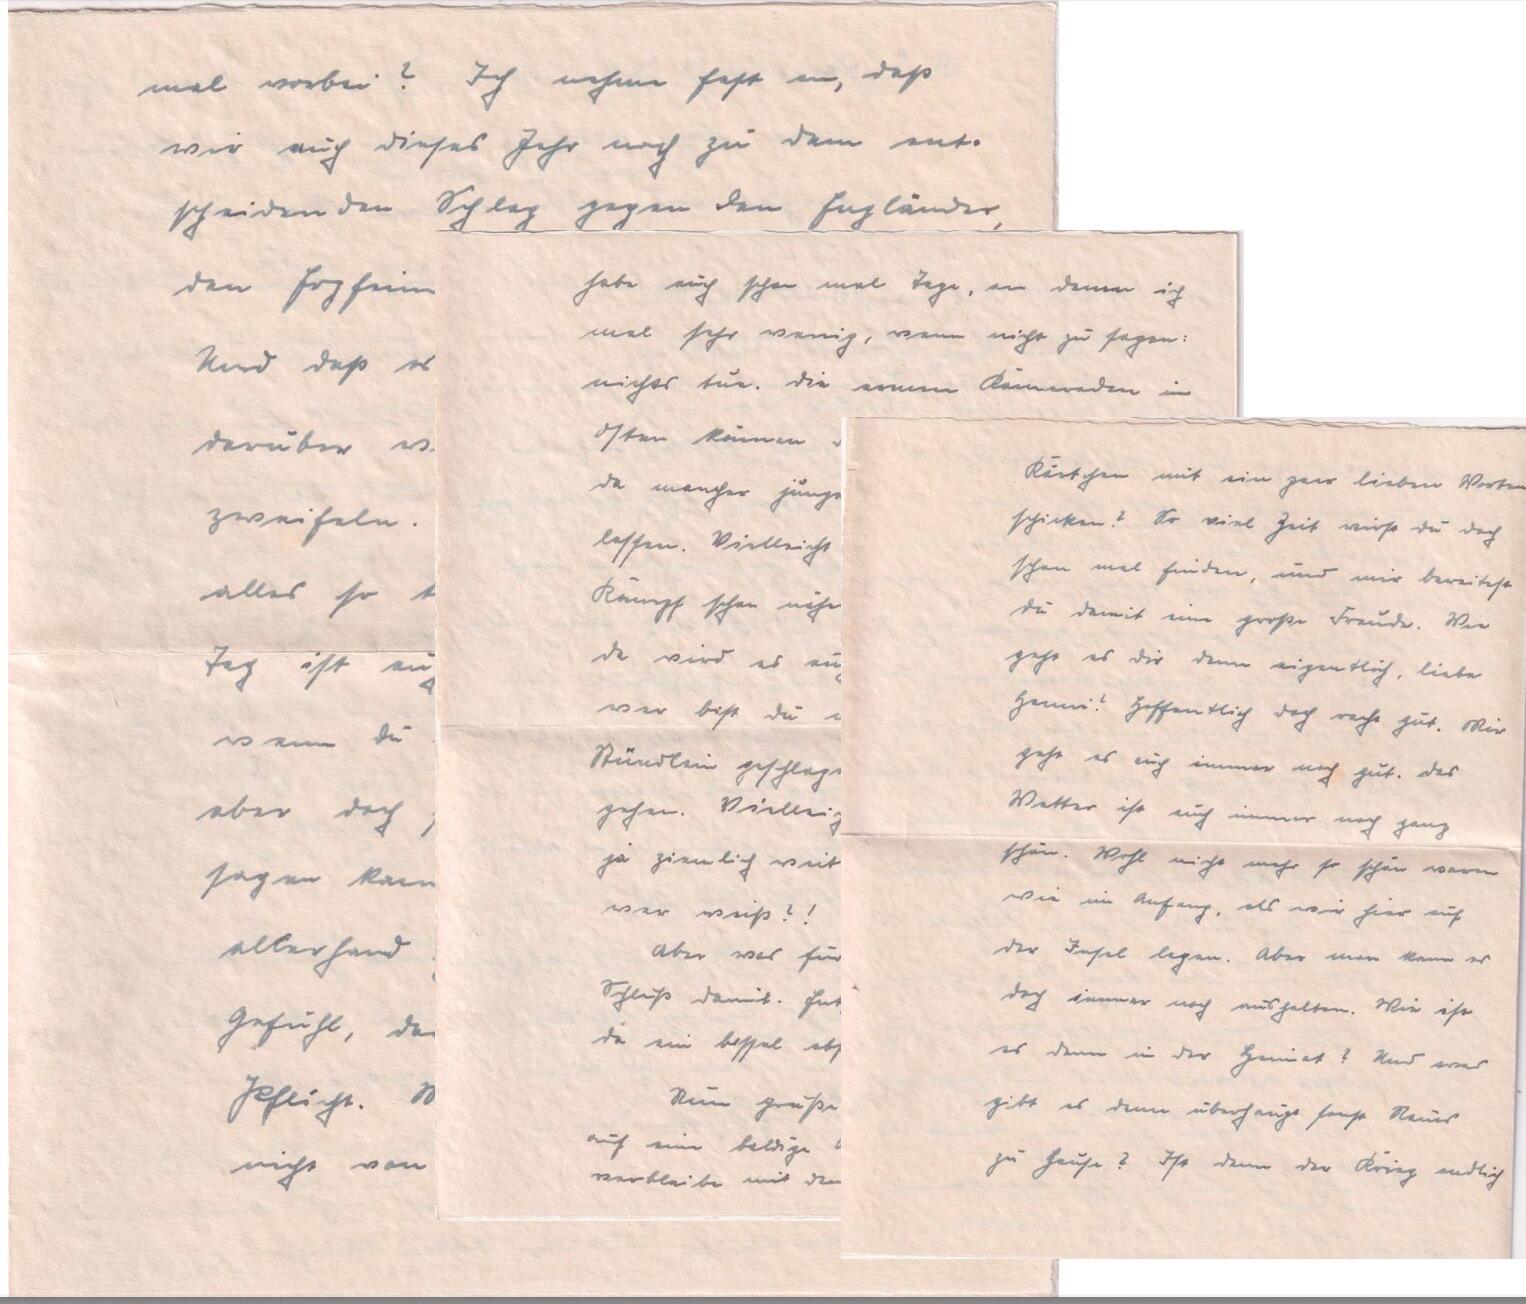 mal vorbei? Ich nehme fest an, daß
wir auch dieses Jahr noch zu dem ent-
scheidenden Schlag gegen den Engländer,
den Erzfein
Und daß es
darüber w
zweifeln.
alles so
Tag ist auch
wenn du
aber doch
sagen kann
allerhand
Gefühl, da
Pflicht.
nicht von
habe auch schon mal Tage, an denen ich
mal sehr wenig, wenn nicht zu sagen:
nichts tue. Die armen Kameraden im
Osten können
da mancher junge
lassen. Vielleicht
Kampf schon nähe
da wird es auch
wer bist du
Stündlein geschlage
gehen. Vielleich
ja ziemlich weit
wer weiß?!
Aber was für
Schluß damit. Ent
da ein bissel abs
Nun grüße
auf eine baldige
verbleibe mit den
Kärtchen mit ein paar lieben Worten
schicken? So viel Zeit wirst du doch
schon mal finden, und mir bereitest
du damit eine große Freude. Wie
geht es dir denn eigentlich, liebe
Hanni? Hoffentlich doch recht gut. Mir
geht es auch immer noch gut. Das
Wetter ist auch immer noch ganz
schön. Wohl nicht mehr so schön warm
wie im Anfang, als wir hier auf
der Insel lagen. Aber man kann es
doch immer noch aushalten. Wie ist
es denn in der Heimat? Und was
gibt es denn überhaupt sonst Neues
zu Hause? Ist denn der Krieg endlich